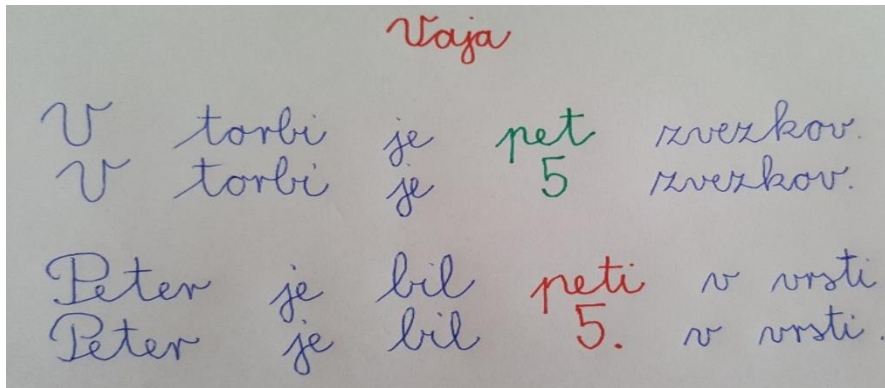 Vaja
V torbi je pet zvezkov.
V torbi je 5 zvezkov.
Peter je bil peti v vrsti
Peter je bil 5. v vrsti.